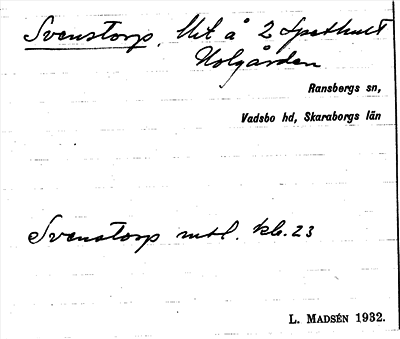 Svenstorp. Utt å 2 Spethult
Holgården
Ransbergs sn,
Vadsbo hd, Skaraborgs län
Svenstorp mtl. kb. 23
L. MADSÉN 1932.